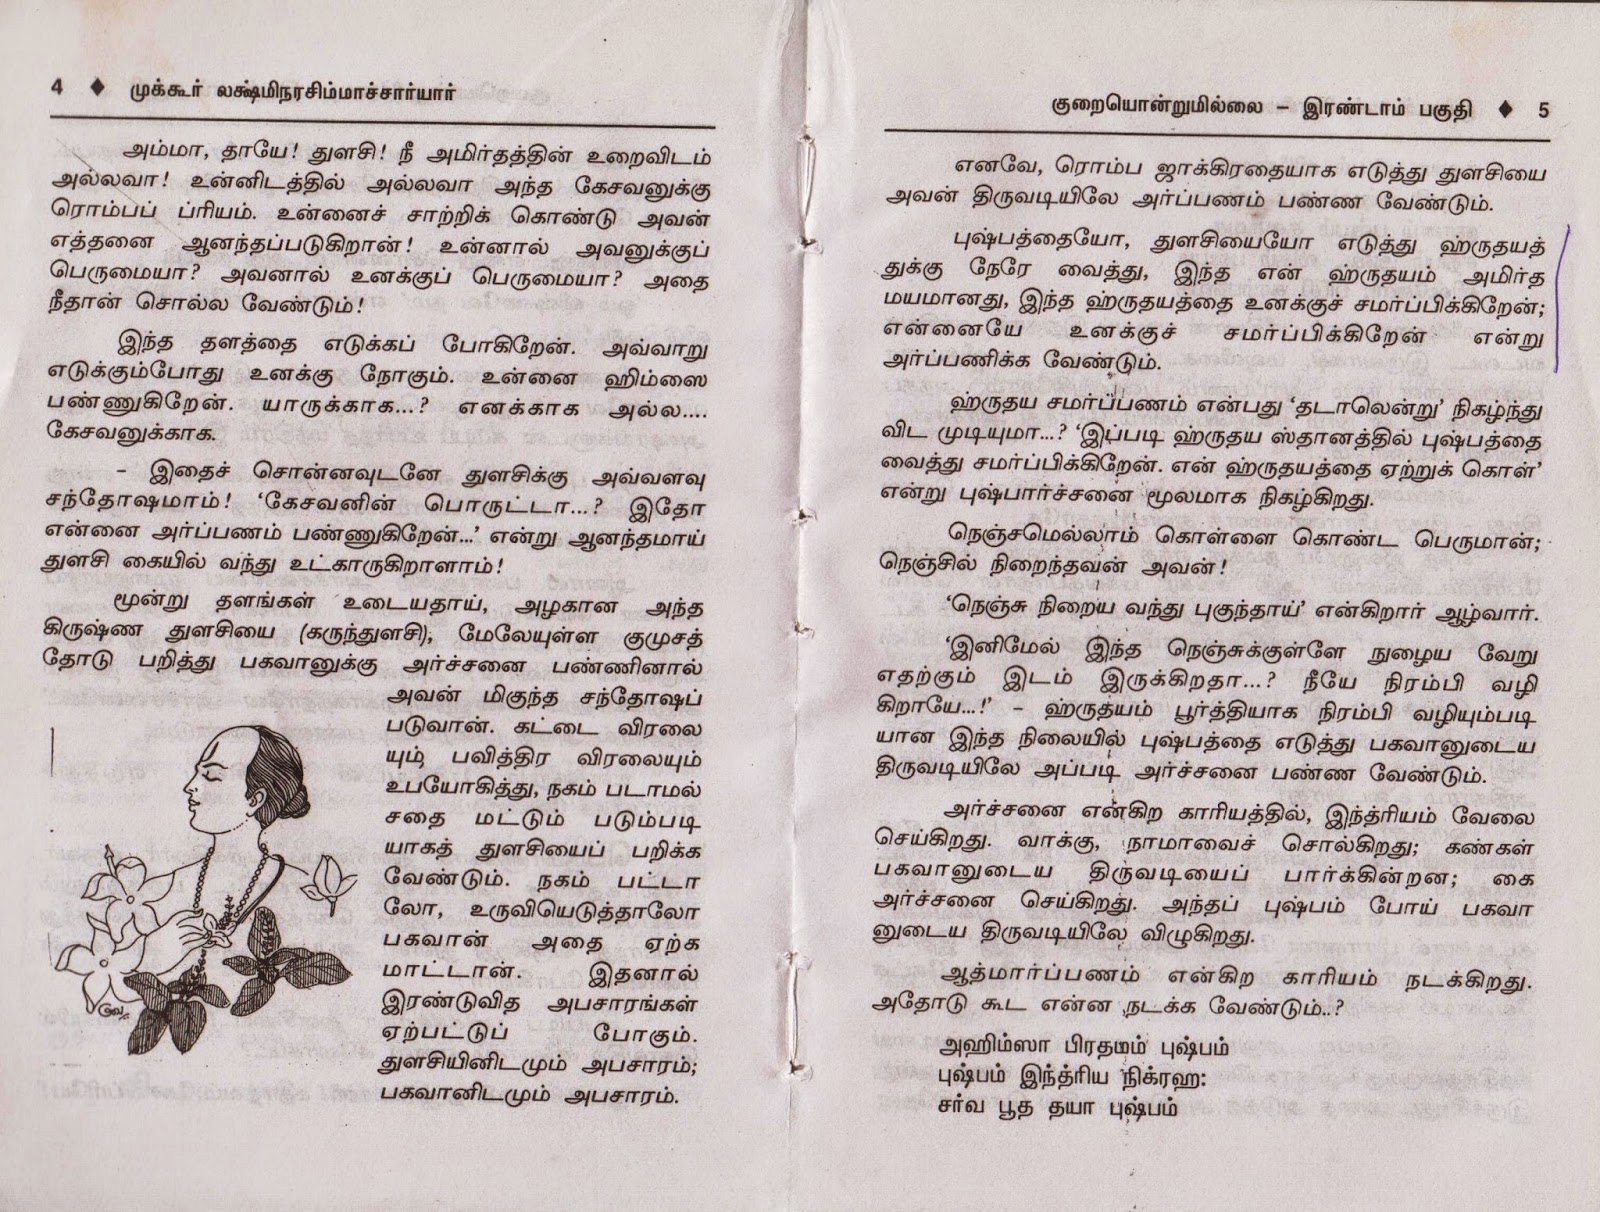 4 ♦ முக்கூர் லக்ஷ்மிநரசிம்மாச்சார்யார்
அம்மா, தாயே! துளசி! நீ அமிர்தத்தின் உறைவிடம்
அல்லவா! உன்னிடத்தில் அல்லவா அந்த கேசவனுக்கு
ரொம்பப் ப்ரியம். உன்னைச் சாற்றிக் கொண்டு அவன்
எத்தனை ஆனந்தப்படுகிறான்! உன்னால் அவனுக்குப்
பெருமையா? அவனால் உனக்குப் பெருமையா? அதை
நீதான் சொல்ல வேண்டும்!
இந்த தளத்தை எடுக்கப் போகிறேன். அவ்வாறு
எடுக்கும்போது உனக்கு நோகும். உன்னை ஹிம்ஸை
பண்ணுகிறேன். யாருக்காக...? எனக்காக அல்ல....
கேசவனுக்காக.
– இதைச் சொன்னவுடனே துளசிக்கு அவ்வளவு
சந்தோஷமாம்! ‘கேசவனின் பொருட்டா...? இதோ
என்னை அர்ப்பணம் பண்ணுகிறேன்...’ என்று ஆனந்தமாய்
துளசி கையில் வந்து உட்காருகிறாளாம்!
மூன்று தளங்கள் உடையதாய், அழகான அந்த
கிருஷ்ண துளசியை (கருந்துளசி), மேலேயுள்ள குமுசத்
தோடு பறித்து பகவானுக்கு அர்ச்சனை பண்ணினால்
அவன் மிகுந்த சந்தோஷப்
படுவான். கட்டை விரலை
யும், பவித்திர விரலையும்
உபயோகித்து, நகம் படாமல்
சதை மட்டும் படும்படி
யாகத் துளசியைப் பறிக்க
வேண்டும். நகம் பட்டா
லோ, உருவியெடுத்தாலோ
பகவான் அதை ஏற்க
மாட்டான். இதனால்
இரண்டுவித அபசாரங்கள்
ஏற்பட்டுப் போகும்.
துளசியினிடமும் அபசாரம்;
பகவானிடமும் அபசாரம்.
குறையொன்றுமில்லை – இரண்டாம் பகுதி ♦ 5
எனவே, ரொம்ப ஜாக்கிரதையாக எடுத்து துளசியை
அவன் திருவடியிலே அர்ப்பணம் பண்ண வேண்டும்.
புஷ்பத்தையோ, துளசியையோ எடுத்து ஹ்ருதயத்
துக்கு நேரே வைத்து, இந்த என் ஹ்ருதயம் அமிர்த
மயமானது, இந்த ஹ்ருதயத்தை உனக்குச் சமர்ப்பிக்கிறேன்;
என்னையே உனக்குச் சமர்ப்பிக்கிறேன் என்று
அர்ப்பணிக்க வேண்டும்.
ஹ்ருதய சமர்ப்பணம் என்பது ‘தடாலென்று’ நிகழ்ந்து
விட முடியுமா...? ‘இப்படி ஹ்ருதய ஸ்தானத்தில் புஷ்பத்தை
வைத்து சமர்ப்பிக்கிறேன். என் ஹ்ருதயத்தை ஏற்றுக் கொள்’
என்று புஷ்பார்ச்சனை மூலமாக நிகழ்கிறது.
நெஞ்சமெல்லாம் கொள்ளை கொண்ட பெருமான்;
நெஞ்சில் நிறைந்தவன் அவன்!
‘நெஞ்சு நிறைய வந்து புகுந்தாய்’ என்கிறார் ஆழ்வார்.
‘இனிமேல் இந்த நெஞ்சுக்குள்ளே நுழைய வேறு
எதற்கும் இடம் இருக்கிறதா...? நீயே நிரம்பி வழி
கிறாயே...!’ – ஹ்ருதயம் பூர்த்தியாக நிரம்பி வழியும்படி
யான இந்த நிலையில் புஷ்பத்தை எடுத்து பகவானுடைய
திருவடியிலே அப்படி அர்ச்சனை பண்ண வேண்டும்.
அர்ச்சனை என்கிற காரியத்தில், இந்த்ரியம் வேலை
செய்கிறது. வாக்கு, நாமாவைச் சொல்கிறது; கண்கள்
பகவானுடைய திருவடியைப் பார்க்கின்றன; கை
அர்ச்சனை செய்கிறது. அந்தப் புஷ்பம் போய் பகவா
னுடைய திருவடியிலே விழுகிறது.
ஆத்மார்ப்பணம் என்கிற காரியம் நடக்கிறது.
அதோடு கூட என்ன நடக்க வேண்டும்..?
அஹிம்ஸா பிரதமம் புஷ்பம்
புஷ்பம் இந்த்ரிய நிக்ரஹ:
சர்வ பூத தயா புஷ்பம்